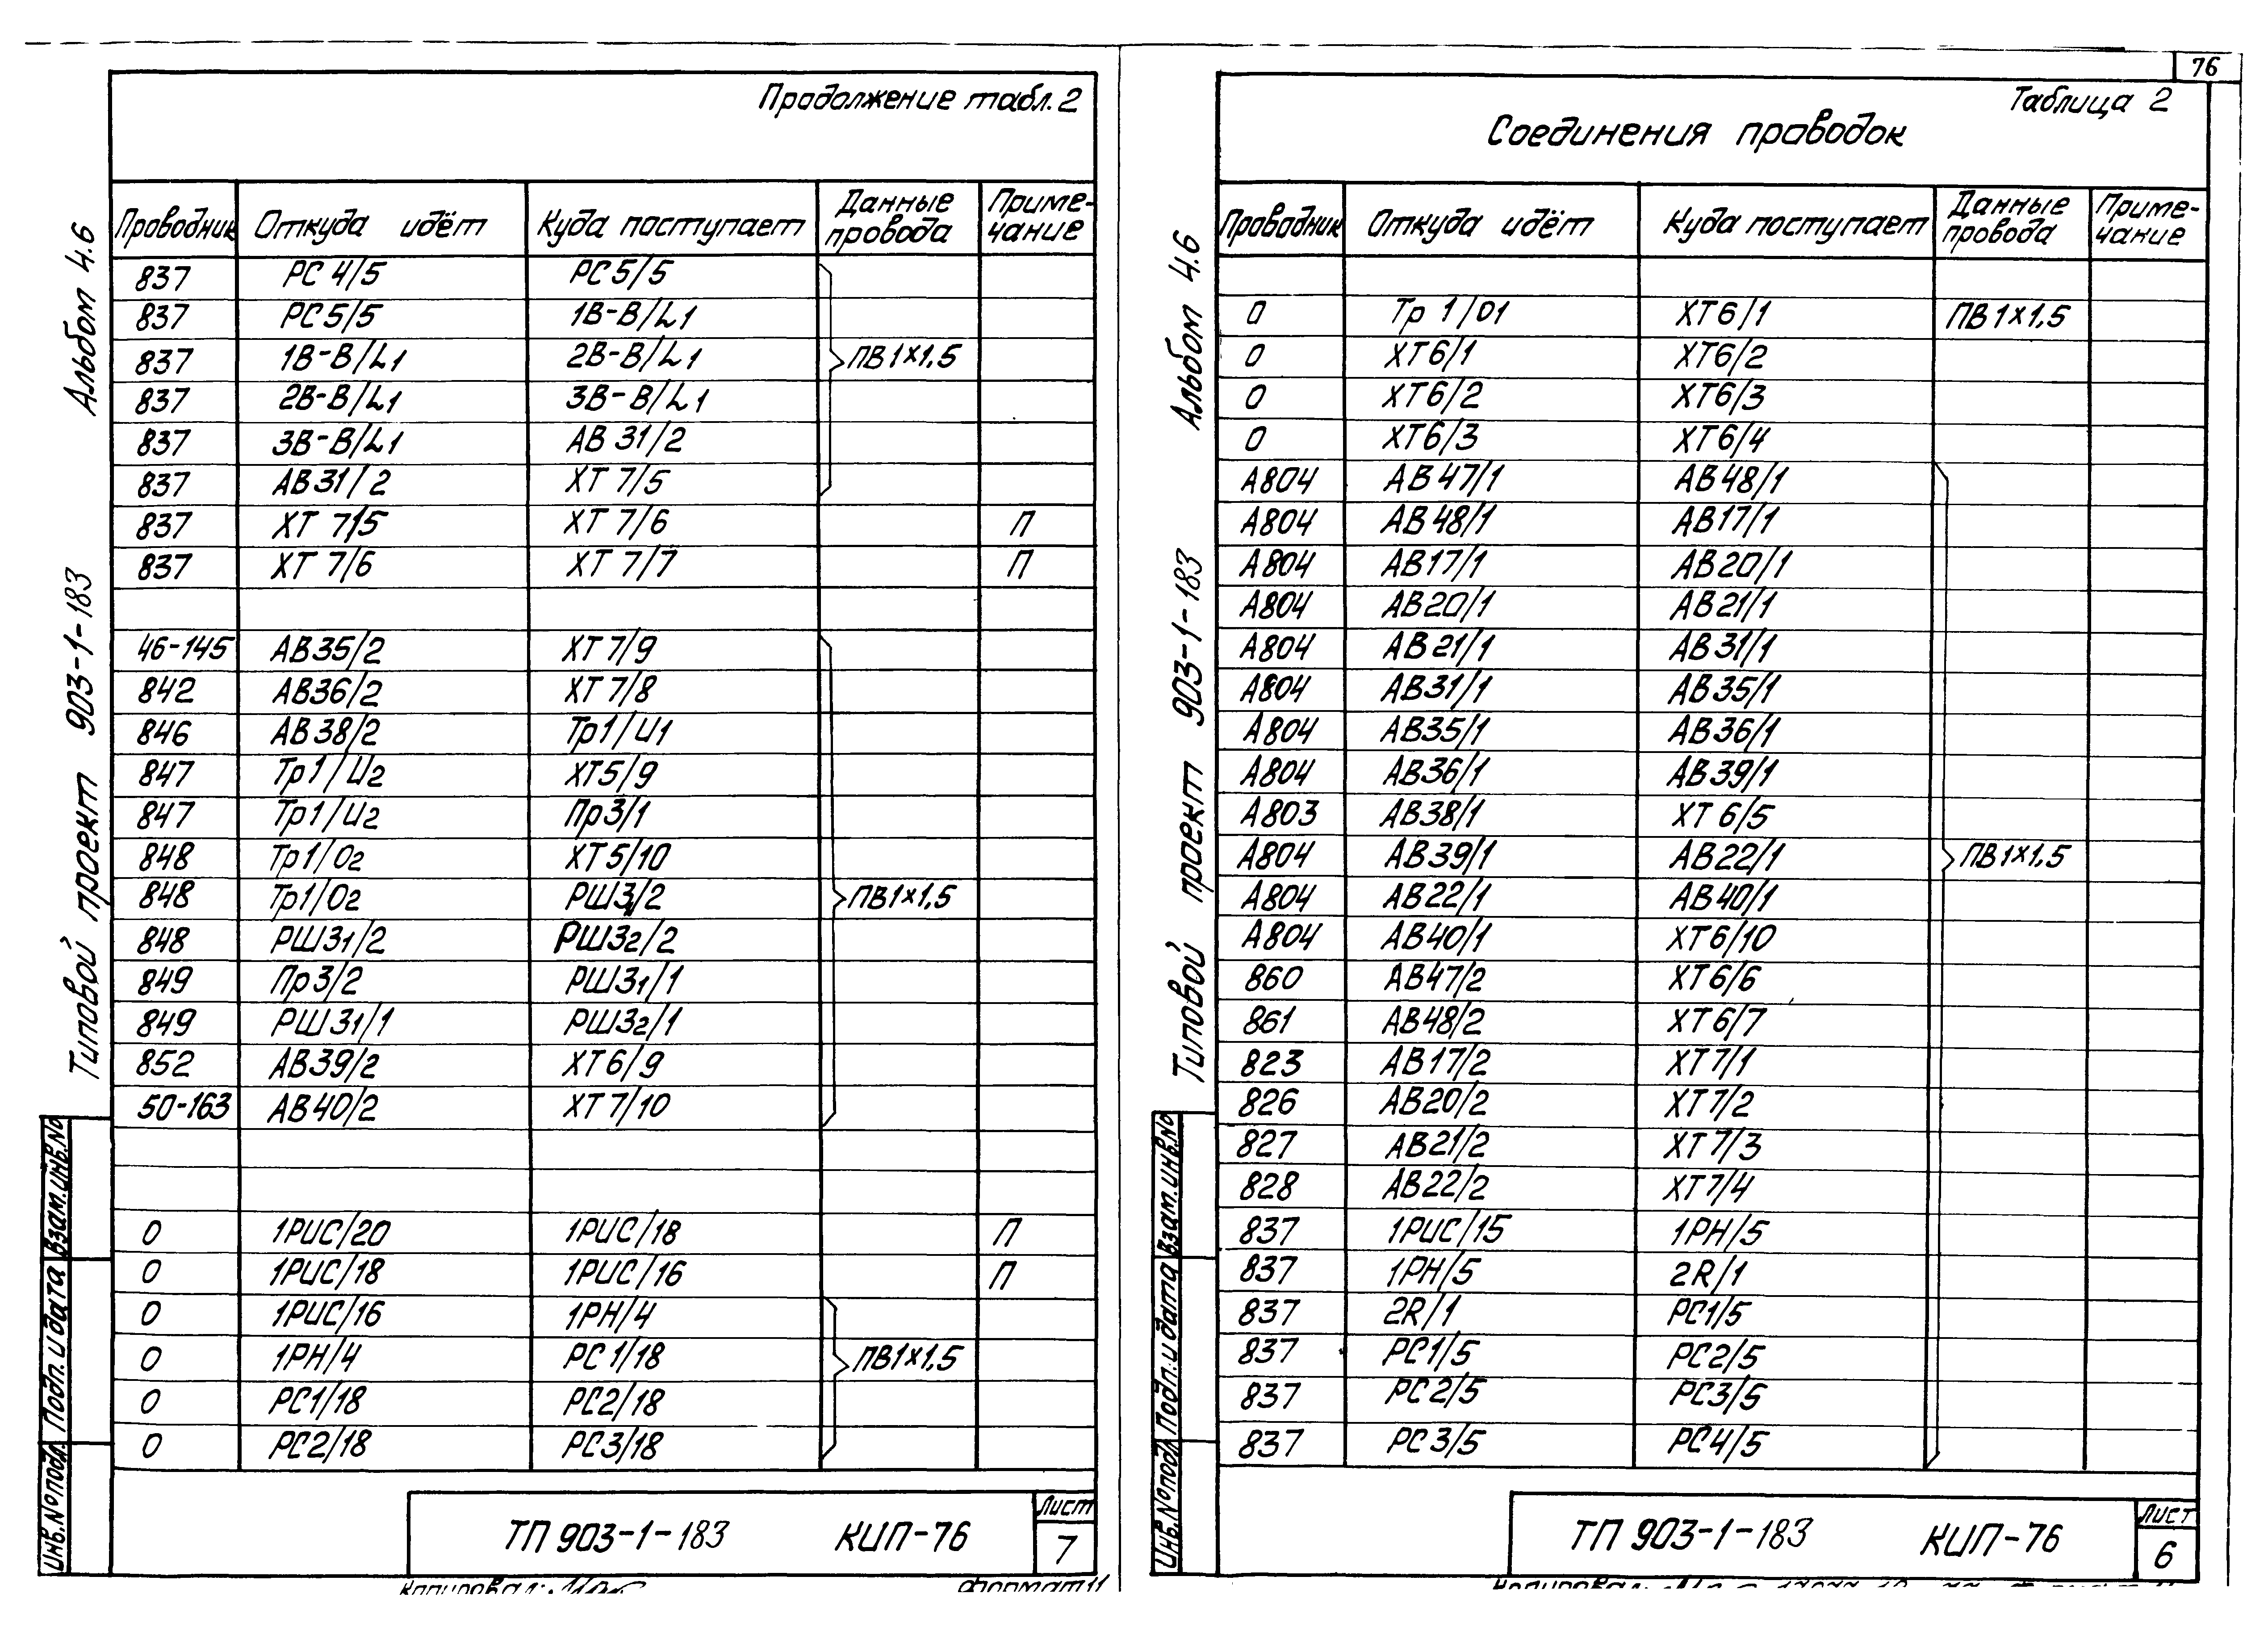 Продолжение табл. 2
Проводник Откуда идёт Куда поступает Данные провода Примечание
837 РС 4/5 РС 5/5
837 РС 5/5 1В-В/L1
837 1В-В/L1 2В-В/L1 ПВ 1×1,5
837 2В-В/L1 3В-В/L1
837 3В-В/L1 АВ 31/2
837 АВ31/2 ХТ 7/5
837 ХТ 7/5 ХТ 7/6 П
837 ХТ 7/6 ХТ 7/7 П
46-145 АВ35/2 ХТ 7/9
842 АВ36/2 ХТ 7/8
846 АВ38/2 Тр1/И1
847 Тр1/И2 ХТ5/9
847 Тр1/И2 Пр3/1
848 Тр1/О2 ХТ5/10
848 Тр1/О2 РШ31/2 ПВ1×1,5
848 РШ31/2 РШ32/2
849 Пр3/2 РШ31/1
849 РШ31/1 РШ32/1
852 АВ39/2 ХТ6/9
50-163 АВ40/2 ХТ7/10
0 1РИС/20 1РИС/18 П
0 1РИС/18 1РИС/16 П
0 1РИС/16 1РН/4
0 1РН/4 РС1/18 ПВ1×1,5
0 РС1/18 РС2/18
0 РС2/18 РС3/18
ТП 903-1-183 КИП-76
Лист
7
Формат 11
Альбом 4.6
Типовой проект 903-1-183
Взам.инв.№
Подп. и дата
Инв.№подл.
76
Таблица 2
Соединения проводок
Проводник Откуда идёт Куда поступает Данные провода Примечание
0 Тр 1/О1 ХТ6/1 ПВ 1×1,5
0 ХТ6/1 ХТ6/2
0 ХТ6/2 ХТ6/3
0 ХТ6/3 ХТ6/4
А804 АВ47/1 АВ48/1
А804 АВ48/1 АВ17/1
А804 АВ17/1 АВ20/1
А804 АВ20/1 АВ21/1
А804 АВ21/1 АВ31/1
А804 АВ31/1 АВ35/1
А804 АВ35/1 АВ36/1
А804 АВ36/1 АВ39/1
А803 АВ38/1 ХТ6/5
А804 АВ39/1 АВ22/1 ПВ1×1,5
А804 АВ22/1 АВ40/1
А804 АВ40/1 ХТ6/10
860 АВ47/2 ХТ6/6
861 АВ48/2 ХТ6/7
823 АВ17/2 ХТ7/1
826 АВ20/2 ХТ7/2
827 АВ21/2 ХТ7/3
828 АВ22/2 ХТ7/4
837 1РИС/15 1РН/5
837 1РН/5 2R/1
837 2R/1 РС1/5
837 РС1/5 РС2/5
837 РС2/5 РС3/5
837 РС3/5 РС4/5
ТП 903-1-183 КИП-76
Лист
6
Альбом 4.6
Типовой проект 903-1-183
Взам.инв.№
Подп. и дата
Инв.№подл.